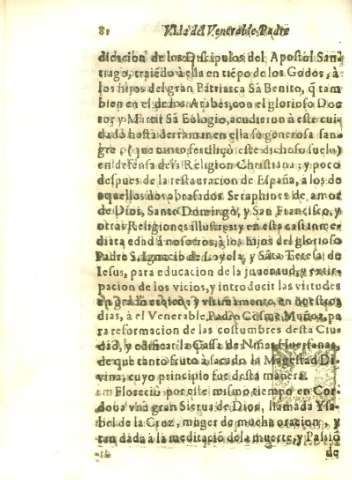 81 Vida del Venerable Padre
dicacion de los Discipulos del Apostol San-
tiago, trayẽdo à ella en tiẽpo de los Godos, à
los hijos del gran Patriarca Sã Benito, q̃ tam
bien en el de los Arabes, con el glorioso Doc
tor y Martir Sã Eulogio, acudieron à este cui
dado hasta derramar en ella su generosa san-
gre (que tanto fertilizò este dichoso suelo)
en defensa de la Religion Christiana; y poco
despues de la restauracion de España, à los de
aquellos dos abrasados Seraphines de amor
de Dios, Santo Domingo, y San Francisco, y
otras Religiones illustres; y en esta casi inme-
diata edad à nosotros, à los hijos del glorioso
Padre S. Ignacio de Loyola, y Sãta Teresa de
Iesus, para educacion de la juventud, y extir-
pacion de los vicios, y introducir las virtudes
en grado eroico; y vltimamente, en nuestros
dias, à el Venerable Padre Cosme Muñoz, pa
ra reformacion de las costumbres desta Ciu-
dad, y edificar la Cassa de Niñas Huerfanas,
de que tanto fruto à sacado la Magestad Di-
vina, cuyo principio fue desta manera.
Floreciò por este mismo tiempo en Cor
doua vna gran Sierua de Dios, llamada Ysa-
bel de la Cruz, muger de mucha oracion, y
tan dada à la meditaciõ de la muerte, y Pasiõ
de